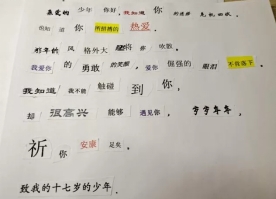 亲爱的 少年 你好，我知道 你
也知道 你 所拥有的 热爱
那年的 风 格外大 将 吹散，
我爱你 的 勇敢 的笑颜，爱你 倔强的 眼泪 不曾落下
我知道 我不能 触碰 到 你，
却 很高兴 能够 遇见你，岁岁年年，
祈 你 安康 足矣，
致我的十七岁的少年．